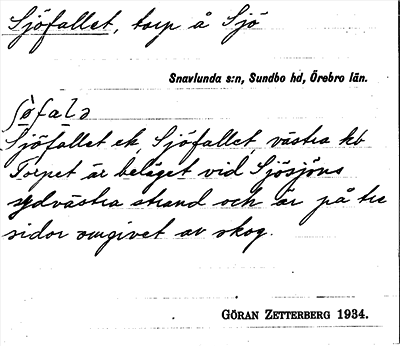 Sjöfallet, torp å Sjö
Snavlunda s:n, Sundbo hd, Örebro län.
ʃø̀falə
Sjöfallet ek, Sjöfallet, västra kb
Torpet är beläget vid Sjösjöns
sydvästra strand och är på tre
sidor omgivet av skog.
GÖRAN ZETTERBERG 1934.